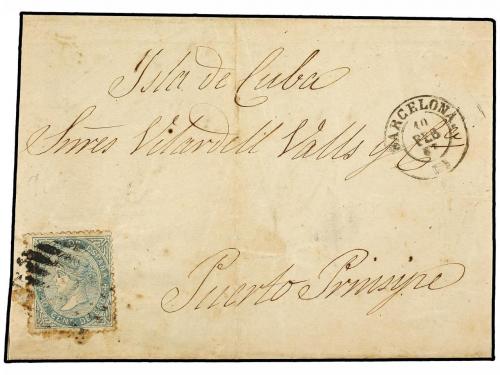 Isla de Cuba
Sres Vilardell Valls y Ca
BARCELONA
10
FEB
67
Puerto Principe
CENT. DE Eº